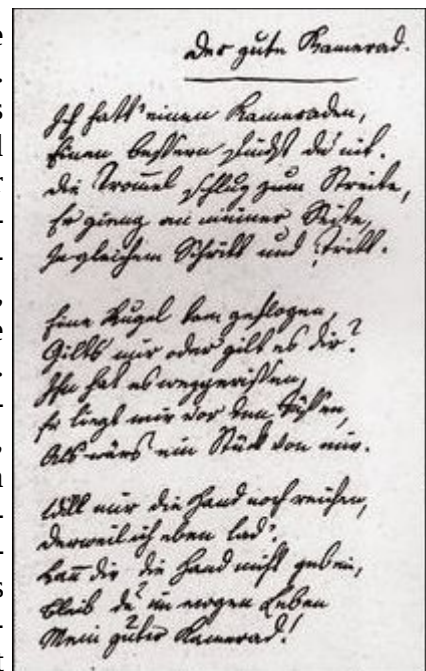 Der gute Kamerad.
Ich hatt' einen Kameraden,
Einen bessern findst du nit.
Die Trom̄el schlug zum Streite,
Er gieng an meiner Seite,
In gleichem Schritt und Tritt.
Eine Kugel kam geflogen,
Gilts mir oder gilt es dir?
Ihn hat es weggerissen,
Er liegt mir vor den Füssen,
Als wärs ein Stück von mir.
Will mir die Hand noch reichen,
Derweil ich eben lad'.
Kan̄ dir die Hand nicht geben,
Bleib du im ewgen Leben
Mein guter Kamerad!